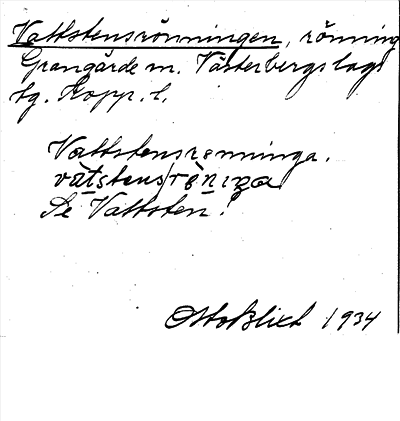 Vattstensrönningen, rönning
Grangärde sn. Västerbergslags
tg. Kopp. l.
Vattstensrønninga.
Se Vattsten!
Otto Blixt 1934